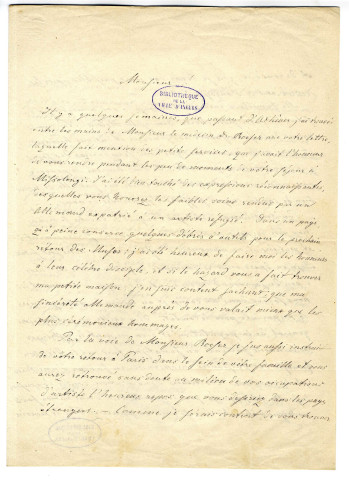 Monsieur
BIBLIOTHÈQUE
DE LA
VILLE D'ANGERS
Il y a quelques semaines, que passant d'Athènes j'ai trouvé
entre les mains de Monsieur le médecin de Roeser une votre lettre,
laquelle fait mention des petits services, que j'avait l'honneur
de vous rendre pendant les peu de moments de votre sejour à
Missolongi. J'ai été touché des expressions reconnaissantes,
desquelles vous les faibles soins rendus par un
Allemand expatrié à un artiste . Dans un pays
qu'à peine conserve quelques débris d'autels pour le prochain
retour des Muses j'ai été heureux de faire moi les honneurs
à leur célèbre disciple, et si le hazard vous a fait trouver
ma petite maison j'en suis content sachant, que ma
sincérité Allemande auprès de vous valait mieux que les
plus cérémonieux hommages.
Par la voie de Monsieur Roeser je fus aussi instruit
de votre retour à Paris dans le sein de votre famille et vous
aurez retrouvé sans doute au milieu de vos occupations
d'artiste l'heureux repos que vous desiriez dans les pays
étrangers. — Comme je serais content de vous trouver